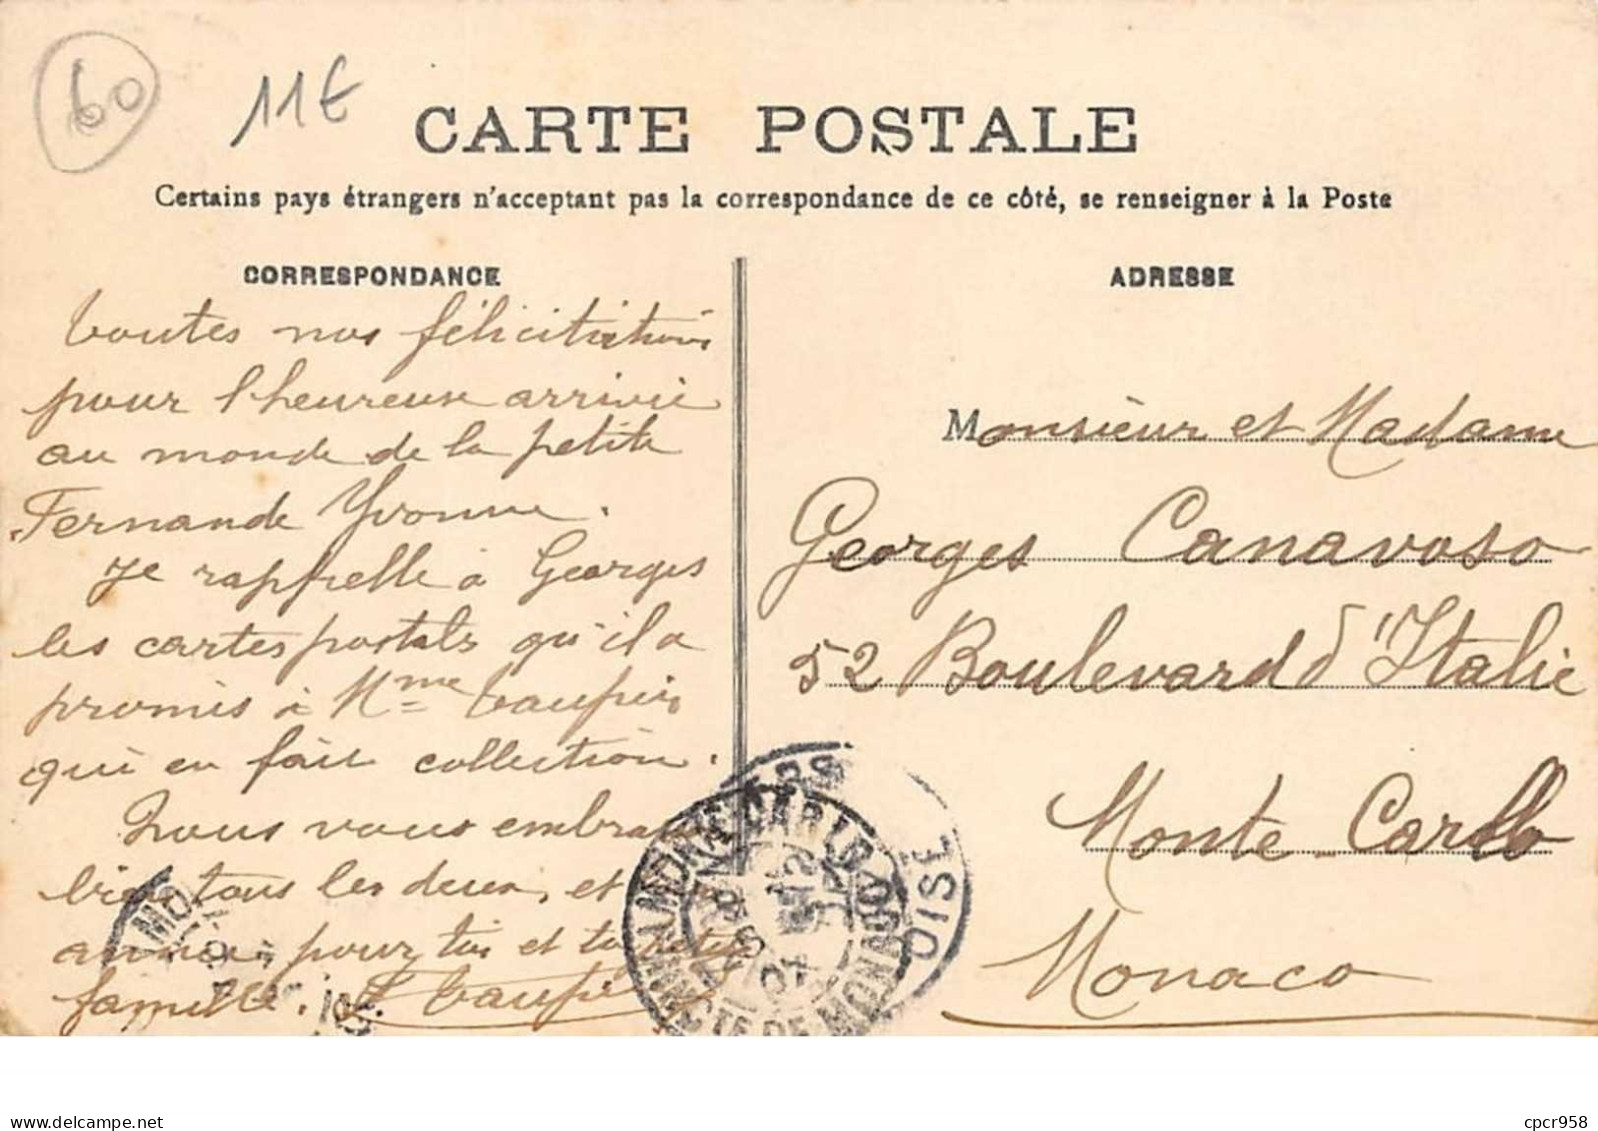 60
11€
CARTE POSTALE
Certains pays étrangers n'acceptant pas la correspondance de ce côté, se renseigner à la Poste
CORRESPONDANCE
Toutes nos félicitations
pour l'heureuse arrivée
au monde de la petite
Fernande Yvonne.
Je rappelle à Georges
les cartes postales qu'il a
promis à Mme Taupin
qui en fait collection.
Nous vous
bien tous les deux, et
pour toi et ta petite
famille.
ADRESSE
Monsieur et Madame
Georges Canavaso
52 Boulevard d'Italie
Monte-Carlo
Monaco
OISE
MONTE CARLO
PRINCTE DE MONACO
www.delcampe.net
cpcr958